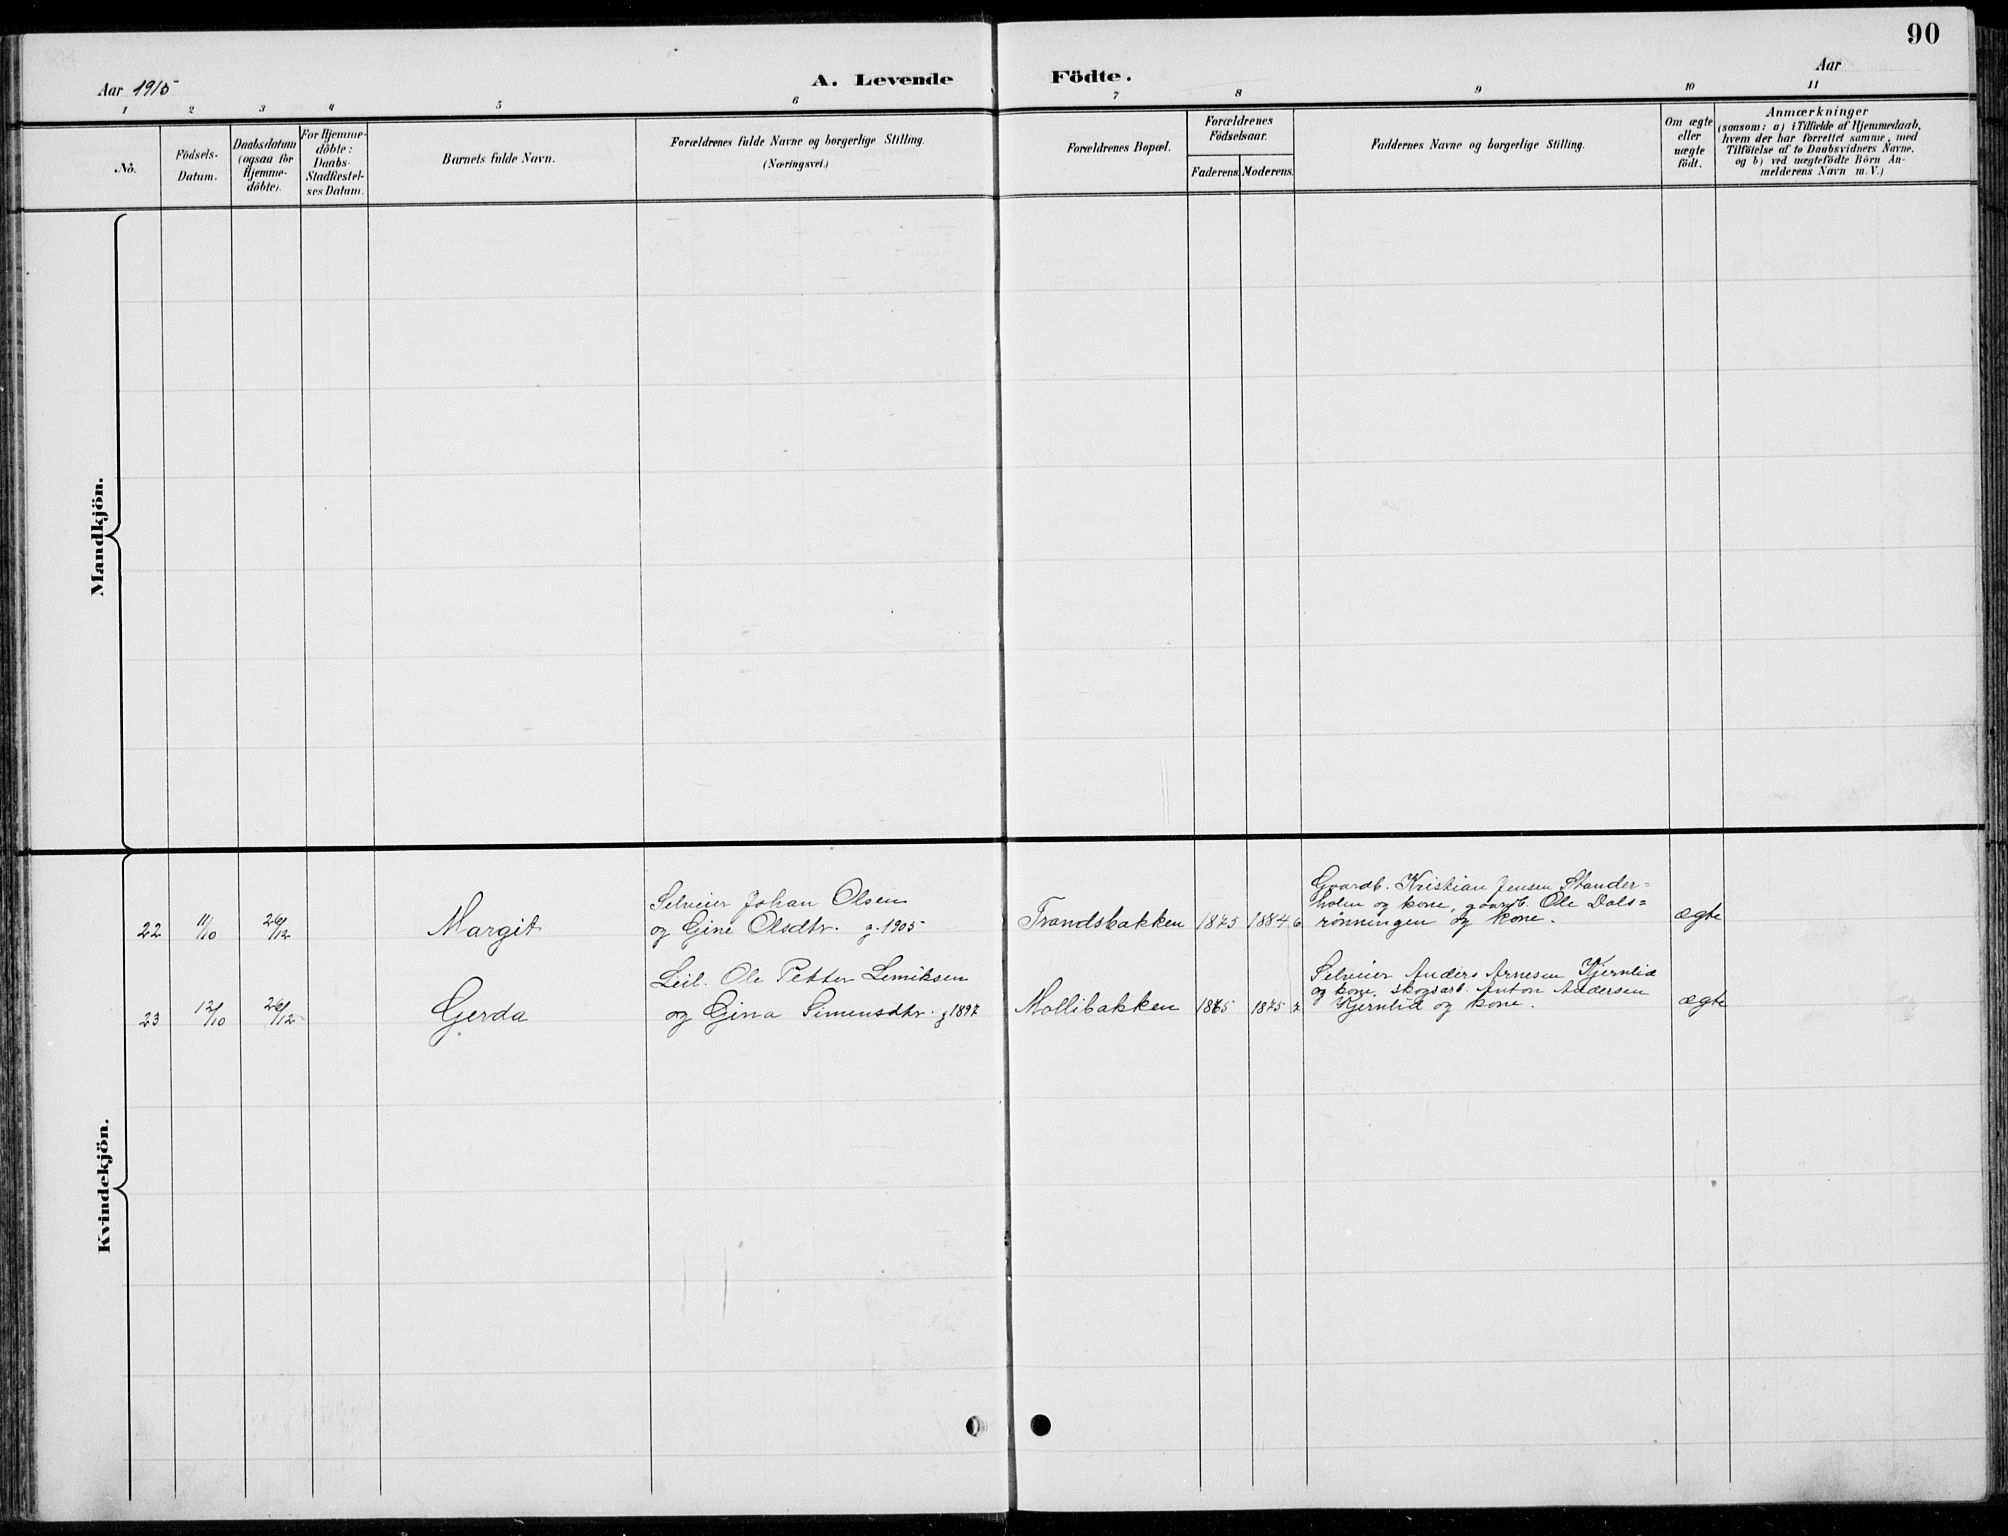 90
Aar 1915
A. Levende
Födte.
Aar
1 2 3 4 5 6 7 8 9 10 11
No.
Födsels-
Datum.
Daabsdatum
(ogsaa for
Hjemme-
döbte).
For Hjemme-
döbte:
Daabs-
Stadfæstel-
ses Datum.
Barnets fulde Navn.
Forældrenes fulde Navne og borgerlige Stilling.
(Næringsvei.)
Forældrenes Bopæl.
Forældrenes
Födselsaar.
Faderens. Moderens.
Faddernes Navne og borgerlige Stilling.
Om ægte
eller
uægte
født.
Anmærkninger
(saasom: a) i Tilfælde af Hjemmedaab,
hvem der har forrettet samme, med
Tilföielse af to Daabsvidners Navne.
og b) ved uægtefödte Börn An-
melderens Navn m.V.)
Mandkjön.
Kvindekjön.
22
11/10
26/12
Margit
Selveier Johan Olsen
og Gine Olsdtr. g. 1905
Trandsbakken
1875
1884
6
Gaardb. Kristian Jensen Stander=
holm og kone, gaardb. Ole Dals=
rönningen og kone.
ægte
23
12/10
26/12
Gerda
Leil. Ole Petter Lemiksen
og Gina Simensdtr. g 1897
Mollibakken
1875
7
Selveier Anders Arnesen Kjernlid
og kone, skogsarb. Anton Andersen
Kjernlid og kone.
ægte